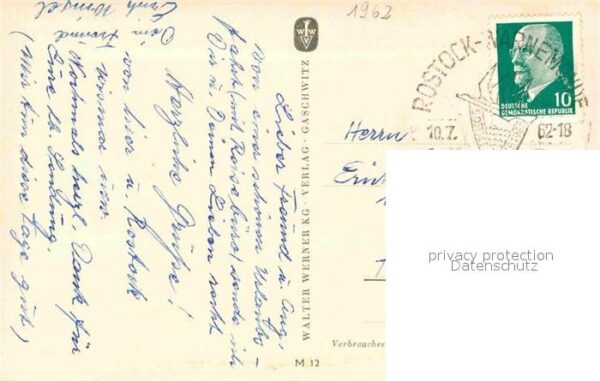 1962
ROSTOCK-WARNEMÜNDE
10.7.
62-18
10
DEUTSCHE
DEMOKRATISCHE REPUBLIK
Herrn
Erich
Lieber Freund u. Ang.,
Von einer schönen Urlaubs-
fahrt (mit Reisebüro) sende ich
Dir u. Deinen Lieben recht
Herzliche Grüße!
von hier u. Rostock
usw.
Nochmals herzl. Dank für
Sendung.
(Wir sind diese Tage gut)
Dein Freund
Erich
WALTER WERNER KG · VERLAG · GASCHWITZ
VWW
M 12
Verbraucher
privacy protection
Datenschutz